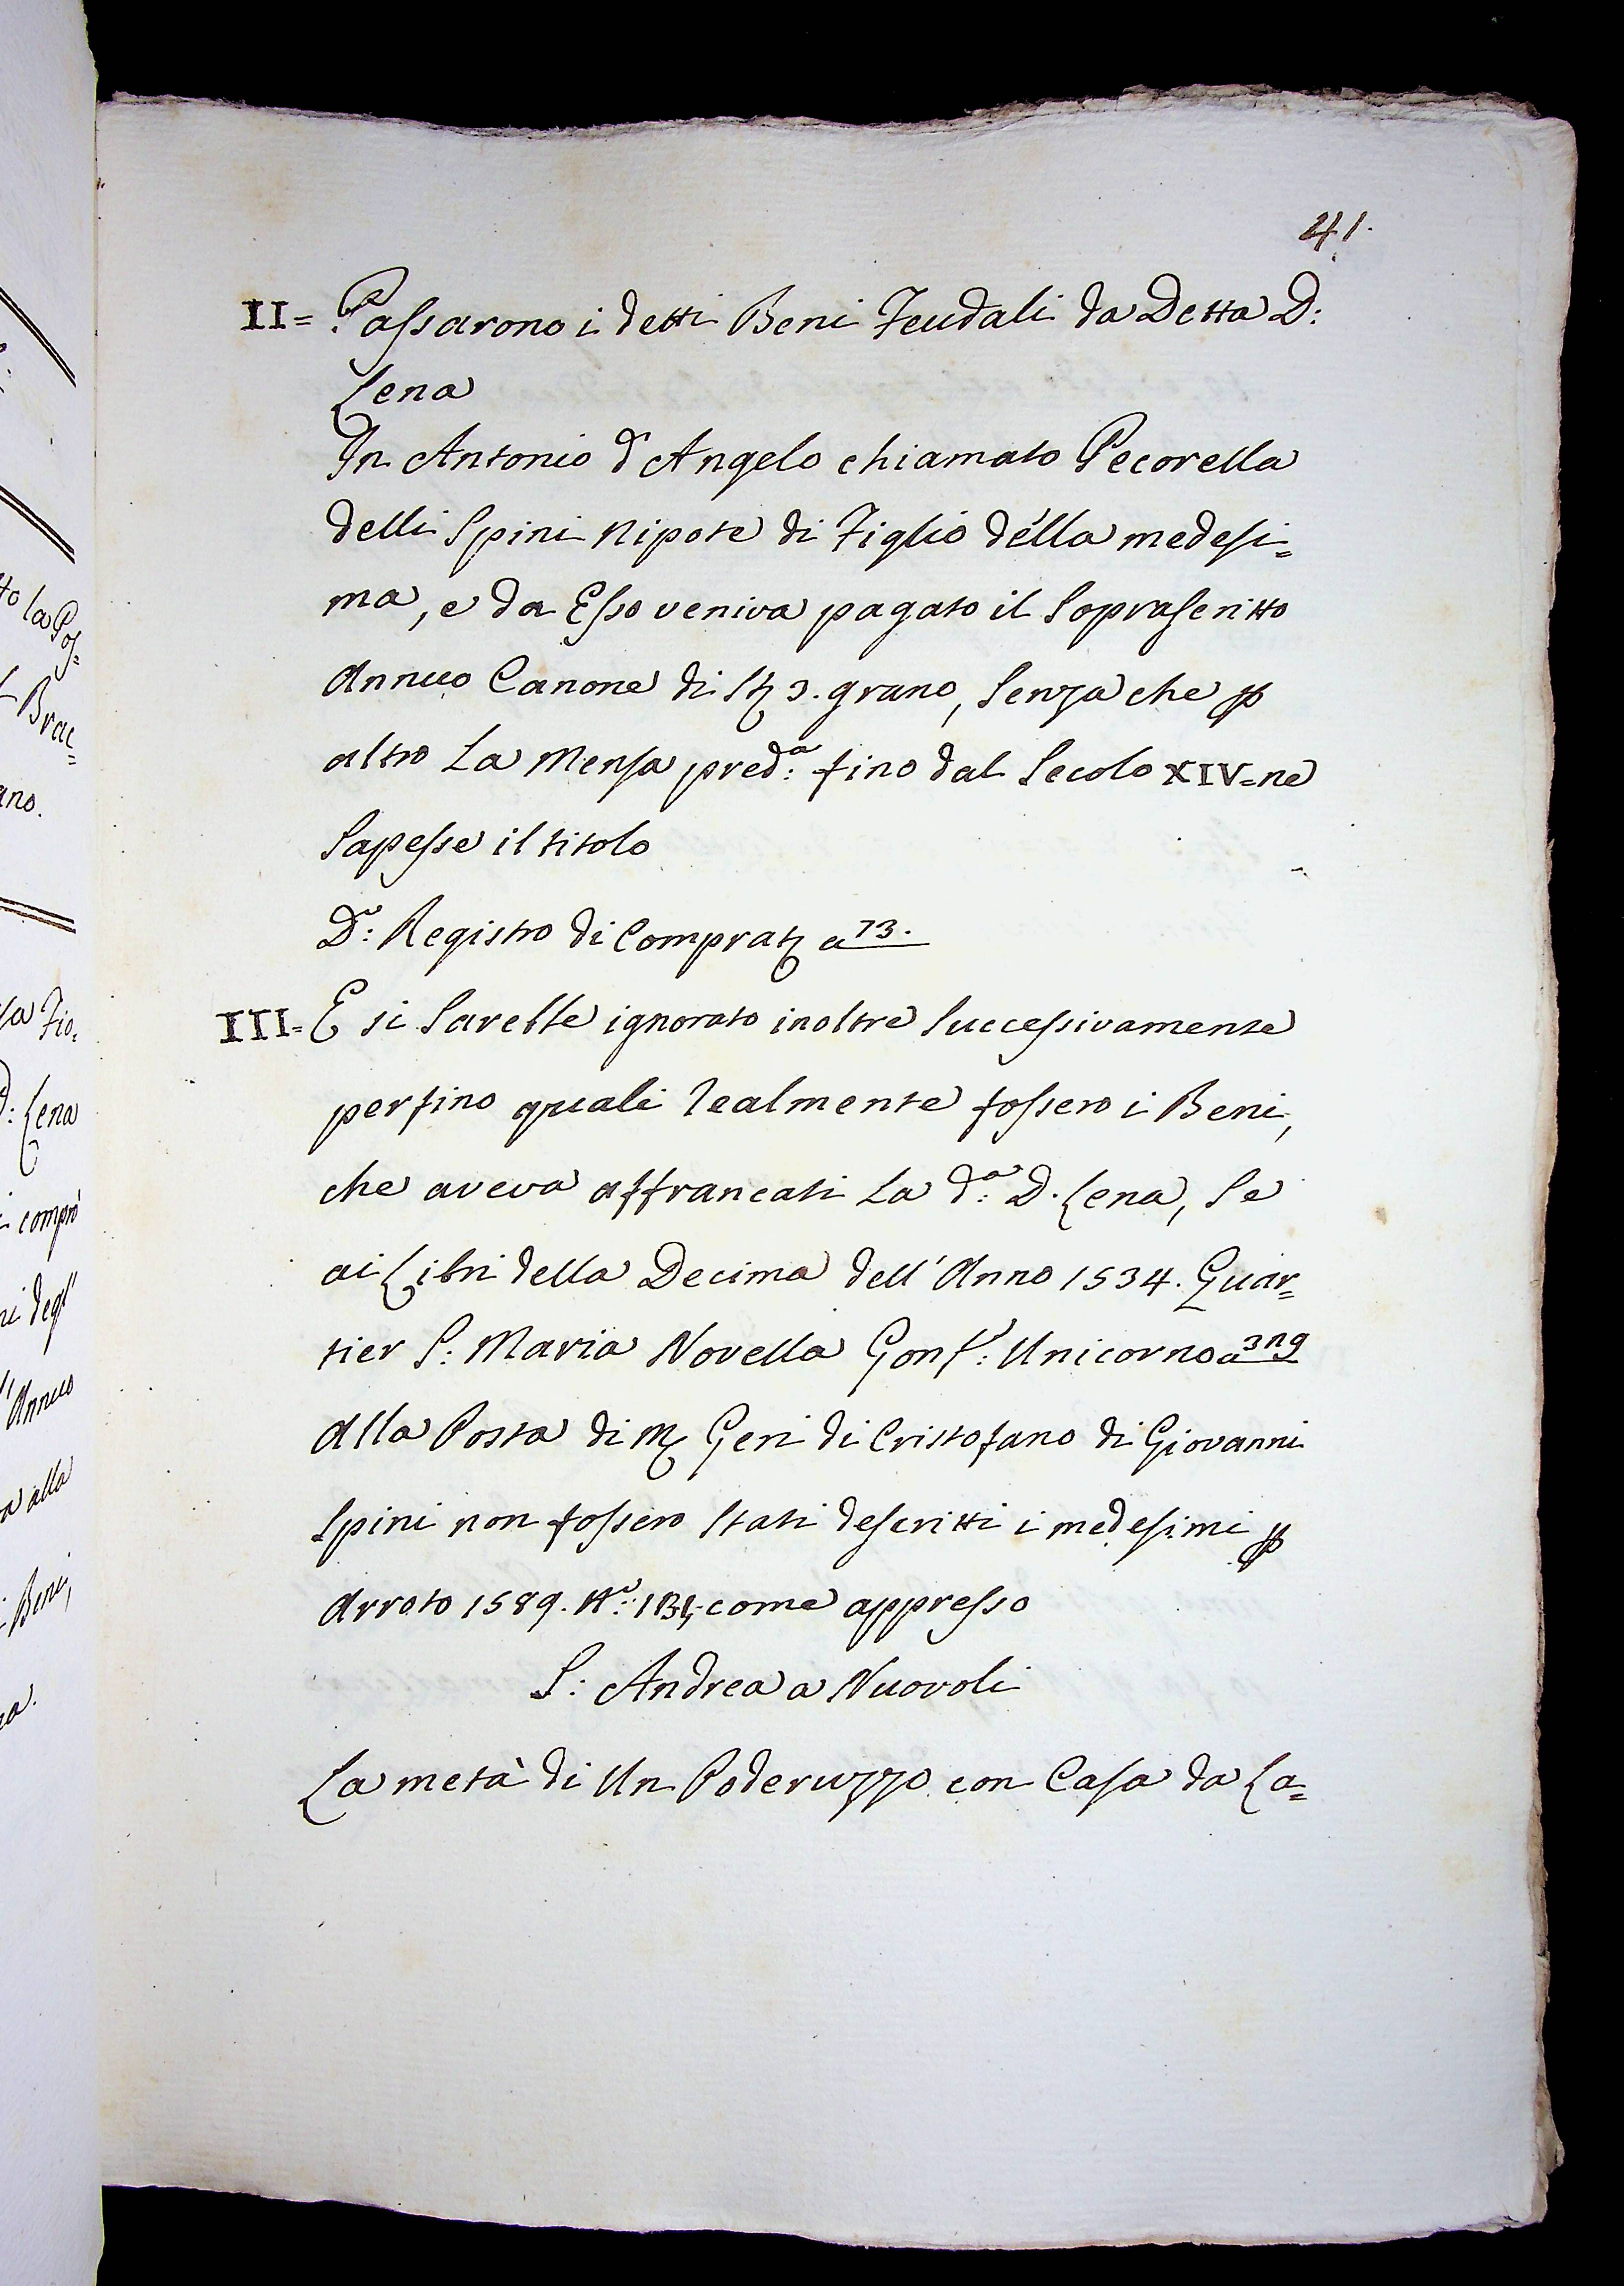 41.
II= Passarono i detti Beni Feudali da Detta D:
Lena
In Antonio d'Angelo chiamato Pecorella
delli Spini Nipote di Figlio della medesi=
ma, e da Esso veniva pagato il Soprascritto
Annuo Canone di St 3. grano, Senza che p
altro La Mensa pred.ª: fino dal Secolo XIV= ne
Sapesse il titolo
D.º: Registro di Comprat a 73.
III= E si Sarebbe ignorato inoltre Successivamente
perfino quali realmente fossero i Beni,
che aveva affrancati La d.ª: D. Lena, Se
ai Libri della Decima dell'Anno 1534. Quar=
tier S: Maria Novella Gonf.e: Unicorno a 319
Alla Posta di M Geri di Cristofano di Giovanni
Spini non fossero Stati descritti i medesimi p
Arroto 1589. N.º: come appresso
S: Andrea a Nuovoli
La metà di Un Poderuzzo con Casa da La=
to la Pos=
Brac=
ano.
la Fio=
D: Lena
comprò
ni degl'
Annuo
alla
Beni,